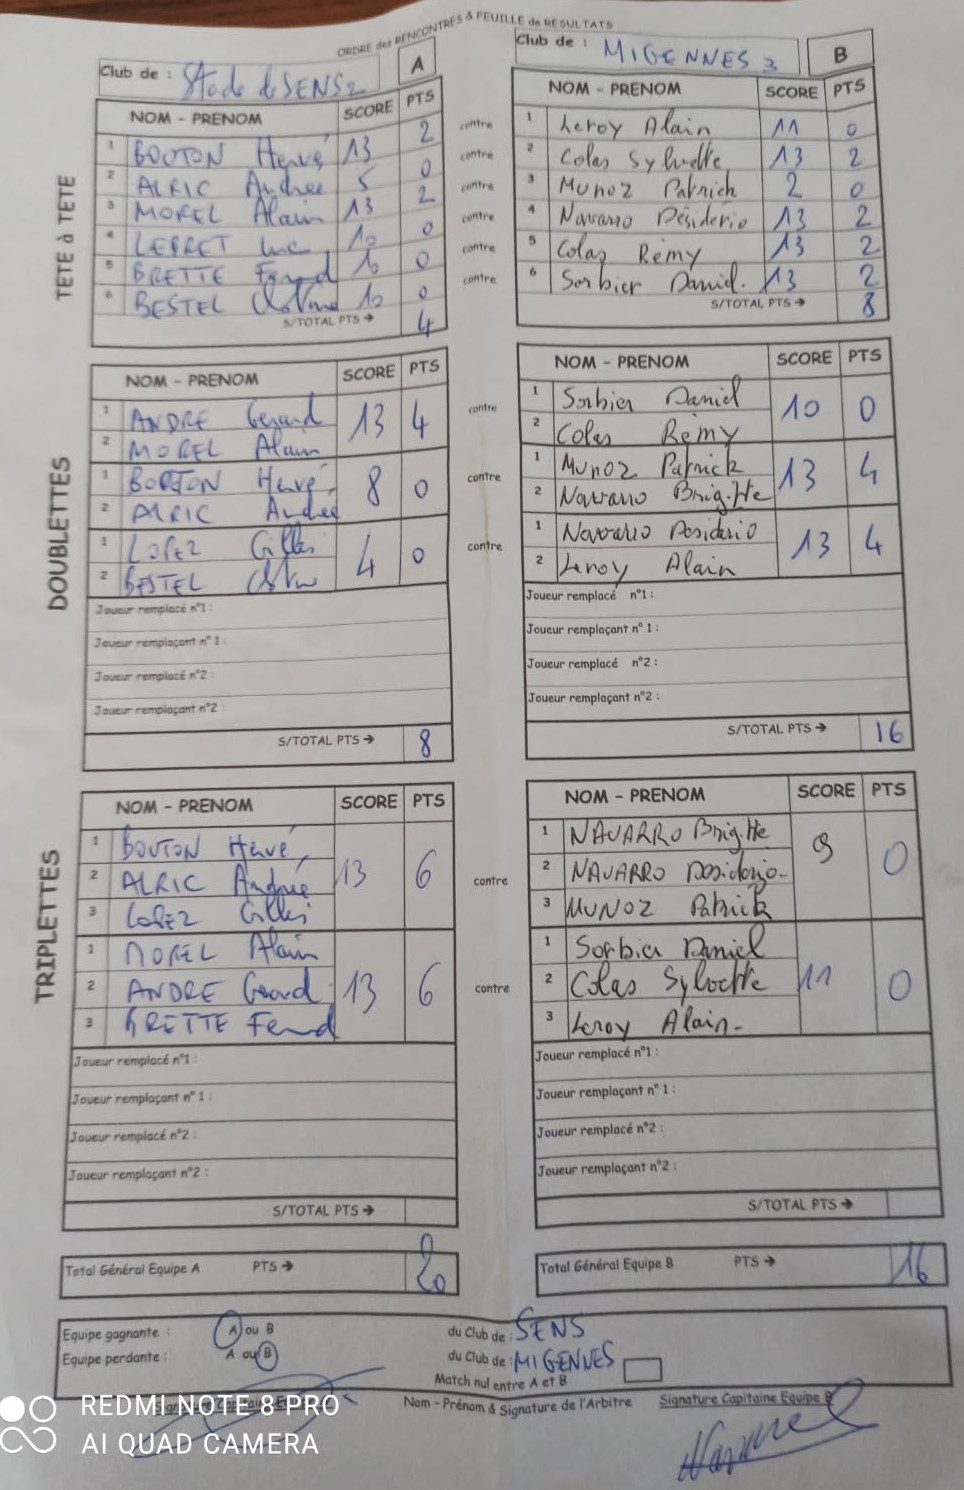 ORDRE des RENCONTRES & FEUILLE de RESULTATS
Club de : Stade de SENS 2 A
NOM - PRENOM SCORE PTS
TETE à TETE
1 BOUTON Hervé 13 2
2 ALRIC Andrée 5 0
3 MOREL Alain 13 2
4 LEBRET Luc 10 0
5 BRETTE Fernd 10 0
6 BESTEL 10 0
S/TOTAL PTS → 4
contre
contre
contre
contre
contre
contre
Club de : MIGENNES 3 B
NOM - PRENOM SCORE PTS
1 Leroy Alain 11 0
2 Colas Sylvette 13 2
3 Munoz Patrick 2 0
4 Navarro Désidério 13 2
5 Colas Rémy 13 2
6 Sorbier Daniel. 13 2
S/TOTAL PTS → 8
DOUBLETTES
NOM - PRENOM SCORE PTS
1 ANDRE Gerard 13 4
2 MOREL Alain
1 BOUTON Hervé 8 0
2 ALRIC Andrée
1 LOPEZ Gilles 4 0
2 BESTEL
Joueur remplacé n°1 :
Joueur remplaçant n° 1 :
Joueur remplacé n°2 :
Joueur remplaçant n°2 :
S/TOTAL PTS → 8
contre
contre
contre
NOM - PRENOM SCORE PTS
1 Sorbier Daniel 10 0
2 Colas Rémy
1 Munoz Patrick 13 4
2 Navarro Brigitte
1 Navarro Desiderio 13 4
2 Leroy Alain
Joueur remplacé n°1 :
Joueur remplaçant n° 1 :
Joueur remplacé n°2 :
Joueur remplaçant n°2 :
S/TOTAL PTS → 16
TRIPLETTES
NOM - PRENOM SCORE PTS
1 BOUTON Hervé 13 6
2 ALRIC Andrée
3 LOPEZ Gilles
1 MOREL Alain 13 6
2 ANDRE Gerard
3 BRETTE Fernd
Joueur remplacé n°1 :
Joueur remplaçant n° 1 :
Joueur remplacé n°2 :
Joueur remplaçant n°2 :
S/TOTAL PTS →
contre
contre
NOM - PRENOM SCORE PTS
1 NAVARRO Brigitte 9 0
2 NAVARRO Desiderio
3 MUNOZ Patrick
1 Sorbier Daniel 11 0
2 Colas Sylvette
3 Leroy Alain
Joueur remplacé n°1 :
Joueur remplaçant n° 1 :
Joueur remplacé n°2 :
Joueur remplaçant n°2 :
S/TOTAL PTS →
Total Général Equipe A PTS → 20
Total Général Equipe B PTS → 16
Equipe gagnante : A ou B du Club de : SENS
Equipe perdante : A ou B du Club de : MIGENNES
Match nul entre A et B
Nom - Prénom & Signature de l'Arbitre Signature Capitaine Equipe B
REDMI NOTE 8 PRO
AI QUAD CAMERA